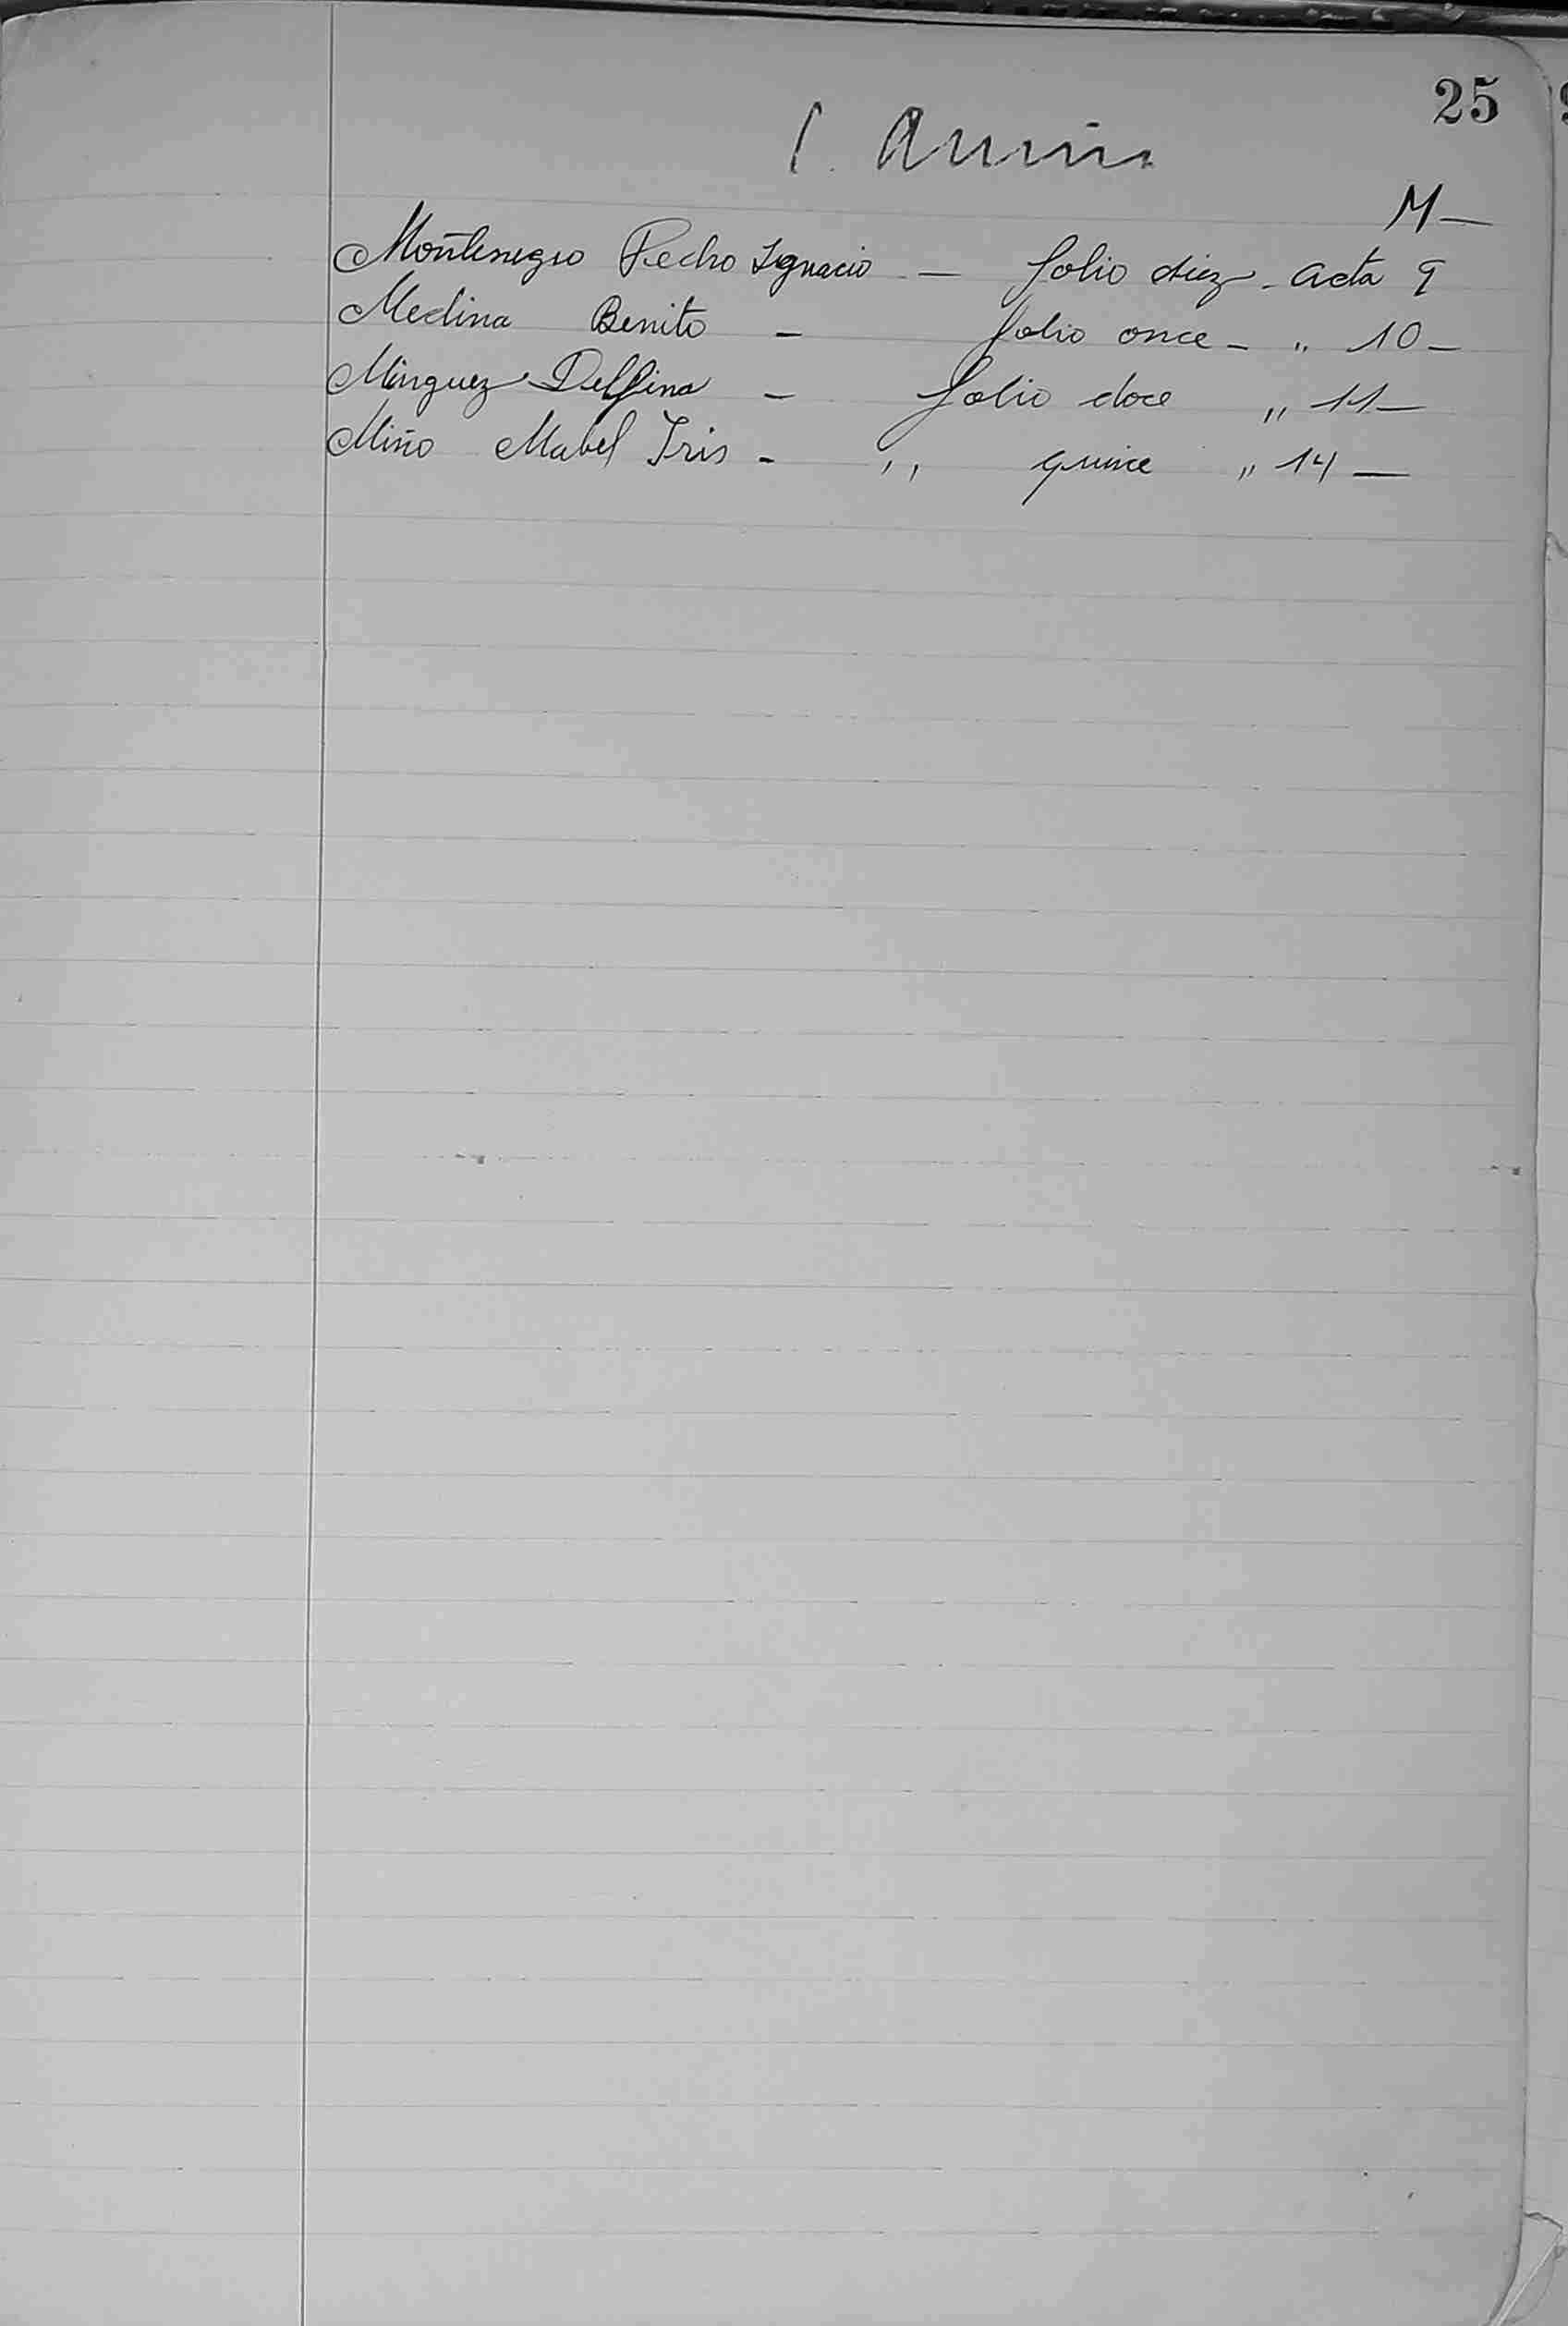 25
M—
Montenegro Pedro Ignacio — folio diez - acta 9
Medina Benito — folio once - " 10 —
Minguez Delfina — folio doce " 11 —
Miño Mabel Iris - " quince " 14 —